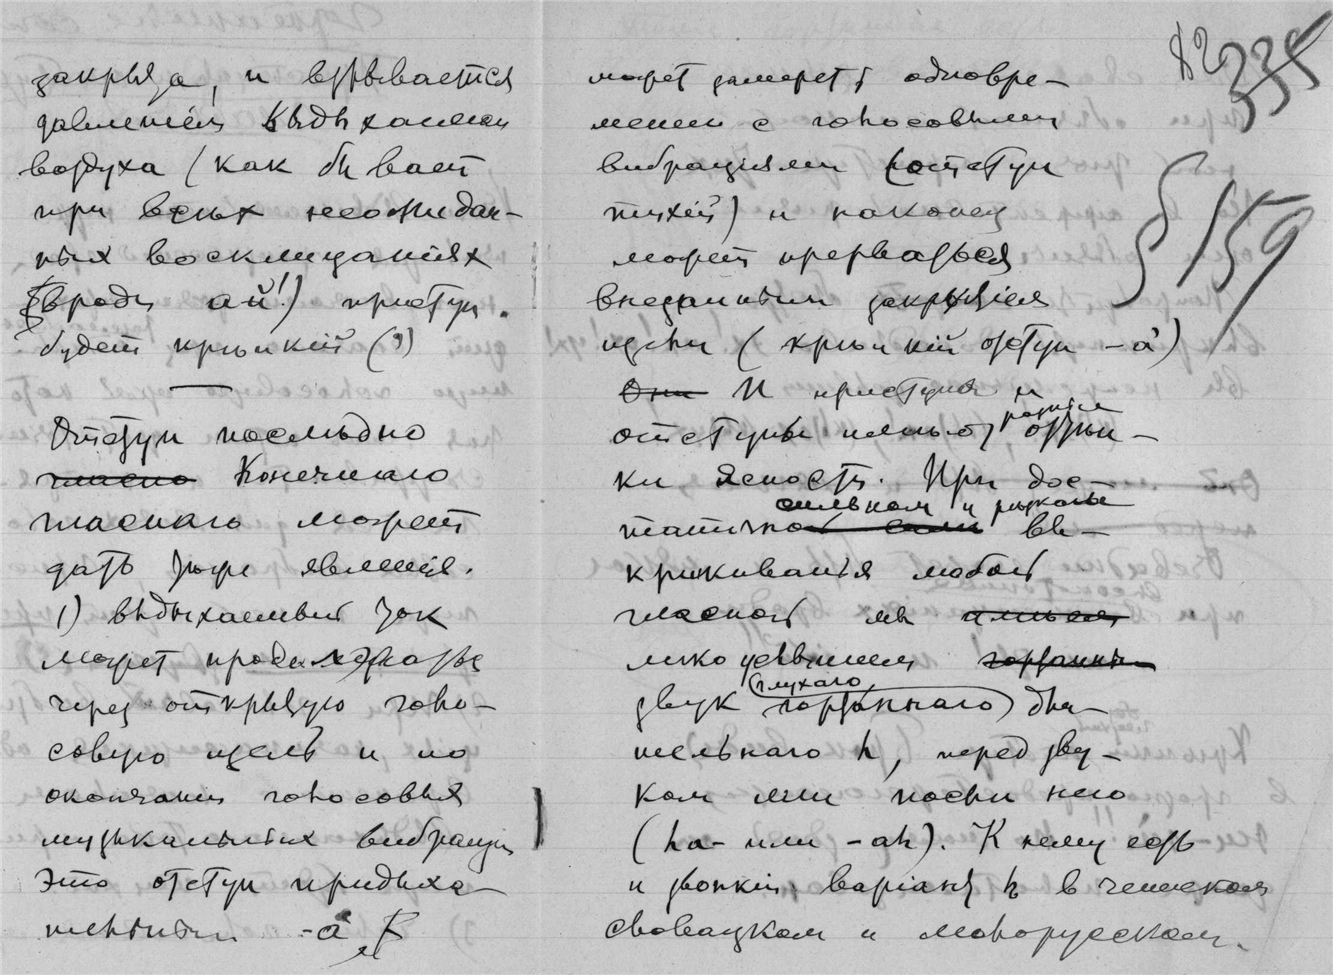 закрыта, и взрывается
давленіем выдыхаемаго
воздуха (как бывает
при всѣх неожидан-
ных восклицаніях
вродѣ ай!) приступ
будет крѣпкій (')
Отступ послѣдно
гласно Конечнаго
гласнаго может
дать три явленія.
1) выдыхаемый ток
может продолжаться
через открытую голо-
совую щель и по
окончаніи голосовых
музыкальных вибрацій
это отступ придыха-
тельный -а
82 335
§ 159
может замереть одновре-
менно с голосовыми
вибраціями (отступ
тихій) и наконец
может прерваться
внезапным закрытіем
щели (крѣпкій отступ -а')
Они И приступы и
отступы имѣют разныя оттѣн-
ки ясности. При дос-
таточно сильном и
вы-
крикиваніи любой
гласной мы
легко услышим
звук глухаго гортаннаго ды-
хательнаго h, перед зву-
ком или послѣ него
(ha- или -ah). К нему есть
и звонкій варіант h в чешском
словацком и малорусском.